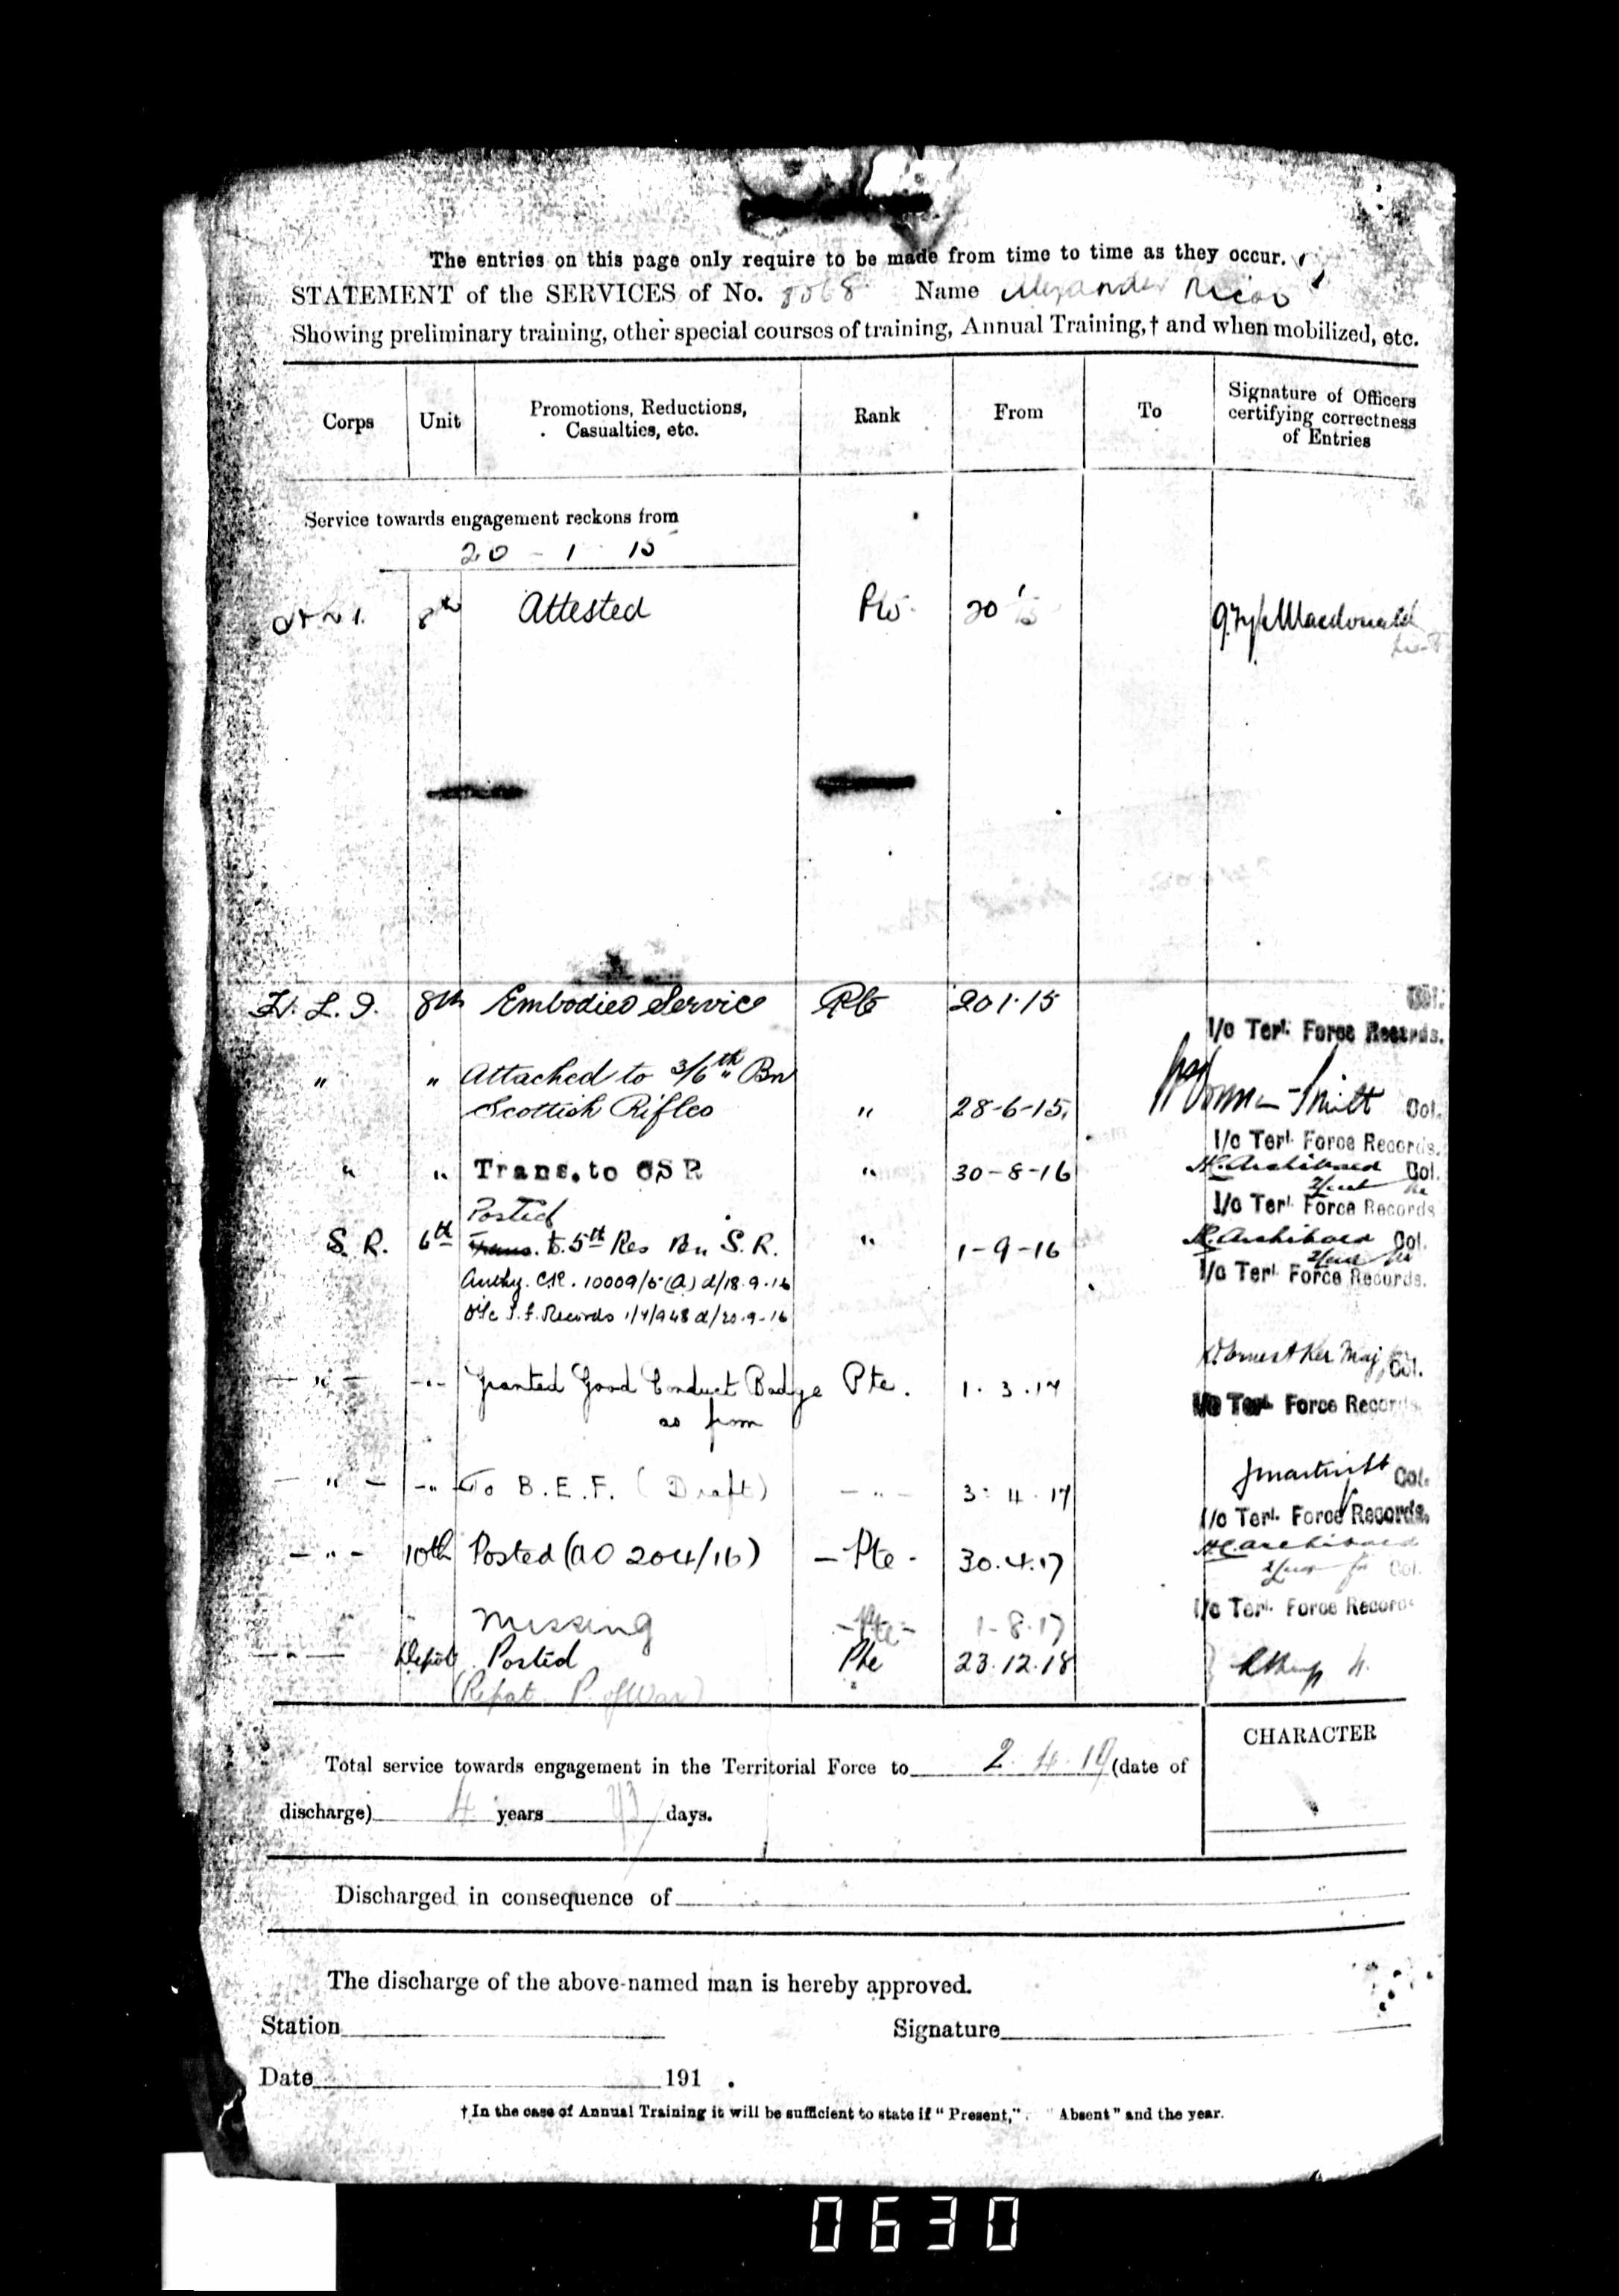 The entries on this page only require to be made from time to time as they occur.
STATEMENT of the SERVICES of No. 8068 Name Alexander
Showing preliminary training, other special courses of training, Annual Training,† and when mobilized, etc.
Corps Unit Promotions, Reductions, Casualties, etc. Rank From To Signature of Officers certifying correctness of Entries
Service towards engagement reckons from
20 - 1 15
8th Attested Pte 20 1 15 Macdonald
Lieut
Col.
H. L. I. 8th Embodied Service Pte 20 1·15
I/c Ter!. Force Records.
" " Attached to 3/6th Bn
Scottish Rifles " 28-6-15. Smith Col.
I/c Ter!. Force Records.
" " Trans. to CSR " 30-8-16 Archibald Col.
I/c Ter!. Force Records
Posted
S. R. 6th Trans. to 5th Res Bn S.R. " 1-9-16 Archibald Col.
I/c Ter!. Force Records.
Authy. C.R. 10009/5 (A) d/18.9.16
O i/c T.F. Records 1/4/948 d/20-9-16
- " - - " - Granted Good Conduct Badge Pte. 1. 3. 17 Ker Maj Col.
as from
I/c Ter!. Force Records
- " - - " - To B.E.F. (Draft) - " - 3: 4. 17 Col.
I/c Ter!. Force Records.
- " - 10th Posted (AO 204/16) - Pte - 30.4.17 Archibald
Col.
I/c Ter!. Force Records
Missing - Pte - 1-8.17
Depot Posted Pte 23.12.18
(Repat P. of War)
CHARACTER
Total service towards engagement in the Territorial Force to 2. 4. 19 (date of
discharge) 4 years 73 days.
Discharged in consequence of
The discharge of the above-named man is hereby approved.
Station Signature
Date 191 .
† In the case of Annual Training it will be sufficient to state if "Present," "Absent" and the year.
0630